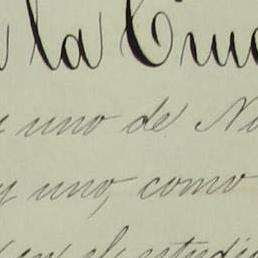 la Ciud
y uno de Nu
y uno, como
en el estudio